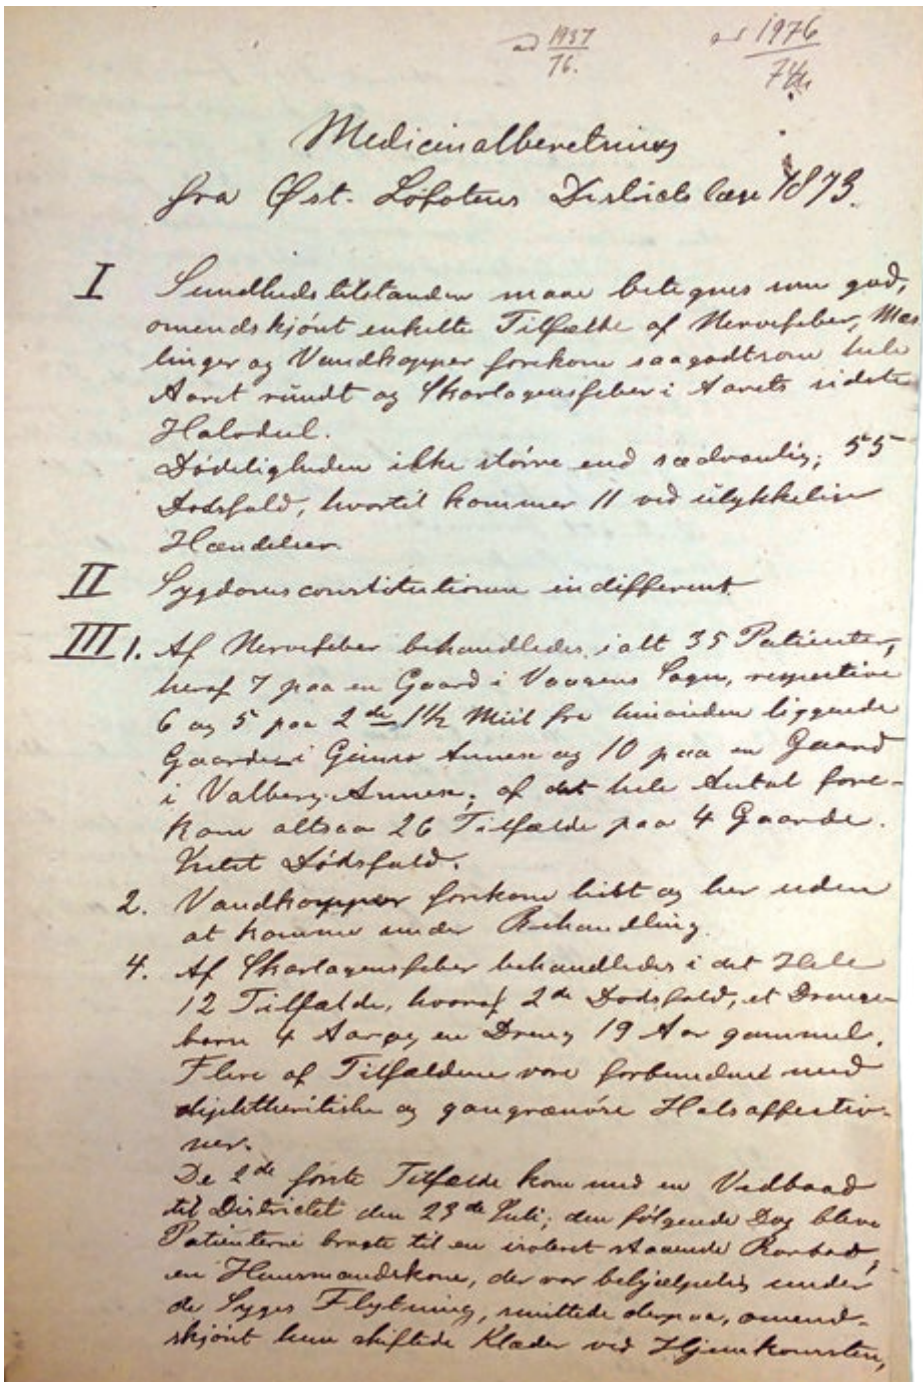 ad 1937/76.
ad 1976/74
Medicinalberetning
fra Øst-Lofotens Districtslæge 1873.
I Sundhedstilstanden maae betegnes som god,
omendskjönt enkelte Tilfælde af Nervefeber, Mæs
linger og Vandkopper forekom saagodtsom hele
Aaret rundt og Skarlagensfeber i Aarets sidste
Halvdel.
Dødeligheden ikke större end sædvanlig; 55
Dødsfald, hvortil kommer 11 ved ulykkelige
Hændelser.
II Sygdomsconstitutionen indifferent
III 1. Af Nervefeber behandledes ialt 35 Patienter,
heraf 7 paa en Gaard i Vaagens Sogn, respective
6 og 5 paa 2de 1½ Miil fra hinanden liggende
Gaarde i Gimsø Annex og 10 paa en Gaard
i Valberg Annex; af det hele Antal fore-
kom altsaa 26 Tilfælde paa 4 Gaarde.
Intet Dødsfald.
2. Vandkopper forekom hist og her uden
at komme under Behandling.
4. Af Skarlagensfeber behandledes i det Hele
12 Tilfælde, hvoraf 2de Dødsfald, et Drenge-
barn 4 Aar og en Dreng 19 Aar gammel.
Flere af Tilfældene vare forbundne med
diphtheritiske og gangrænöse Halsaffectio-
ner.
De 2de förste Tilfælde kom med en Vedbaad
til Districtet den 23de Juli; den fölgende Dag bleve
Patienterne bragte til en isoleret staaende Rorbod,
en Huusmandskone, der var behjælpelig under
de Syges Flytning, smittede derpaa, omend-
skjönt hun skiftede Klæder ved Hjemkomsten,